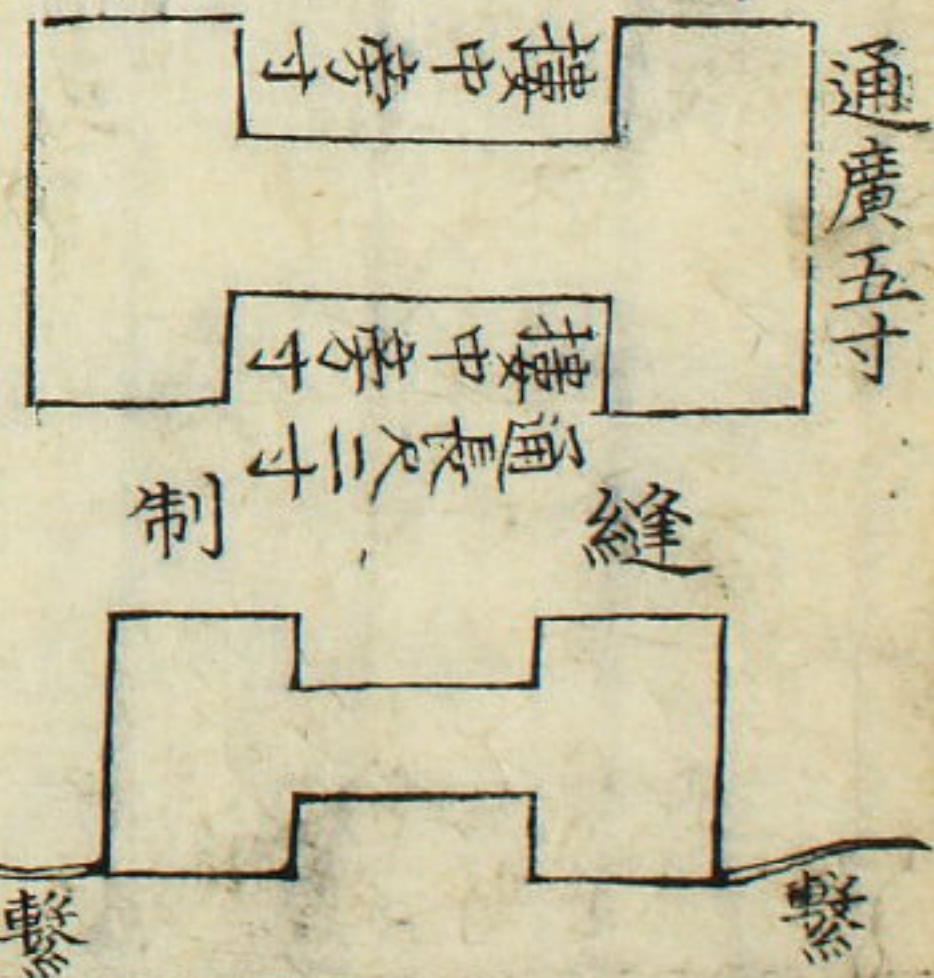 通廣五寸
摟中旁寸
摟中旁寸
通長尺二寸
縫制
繫
繫